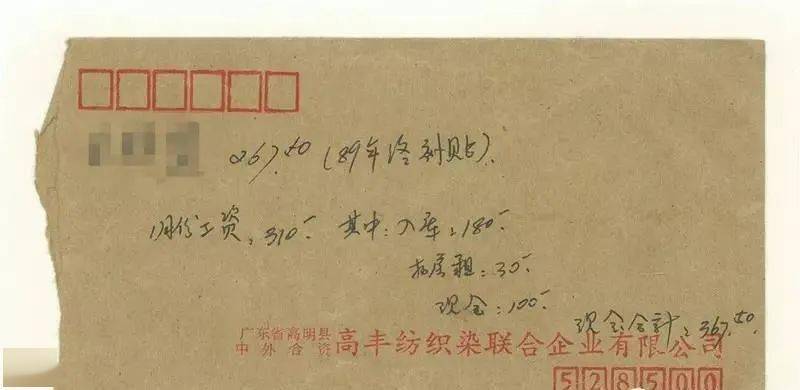 267.50 (89年终补贴).
1月份工资: 310- 其中: 入库: 180-
扣房租: 30-
现金: 100-
现金合计: 367.50.
广东省高明县
中外合资 高丰纺织染联合企业有限公司
528500